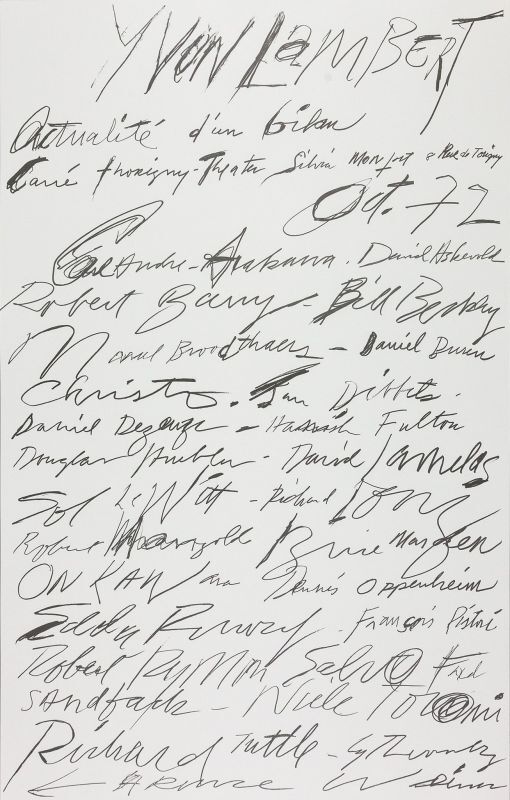 YVON LAMBERT
Actualité d'un bilan
Carré Thorigny - Theater Silvia Monfort 8 Rue de Torigny
Oct. 72
Carl Andre - Arakawa. David Askevold
Robert Barry - Bill Beckley
Marcel Broodthaers - Daniel Buren
Christo. Jan Dibbets.
Daniel Dezeuze - Hamish Fulton
Douglas Huebler - David Lamelas
Sol LeWitt - Richard Long
Robert Mangold Brice Marden
ON KAWara Dennis Oppenheim
Edda Renouf. François Ristori
Robert Ryman Salvo Fred
SANdback - Niele Toroni
Richard Tuttle - Cy Twombly
Weiner